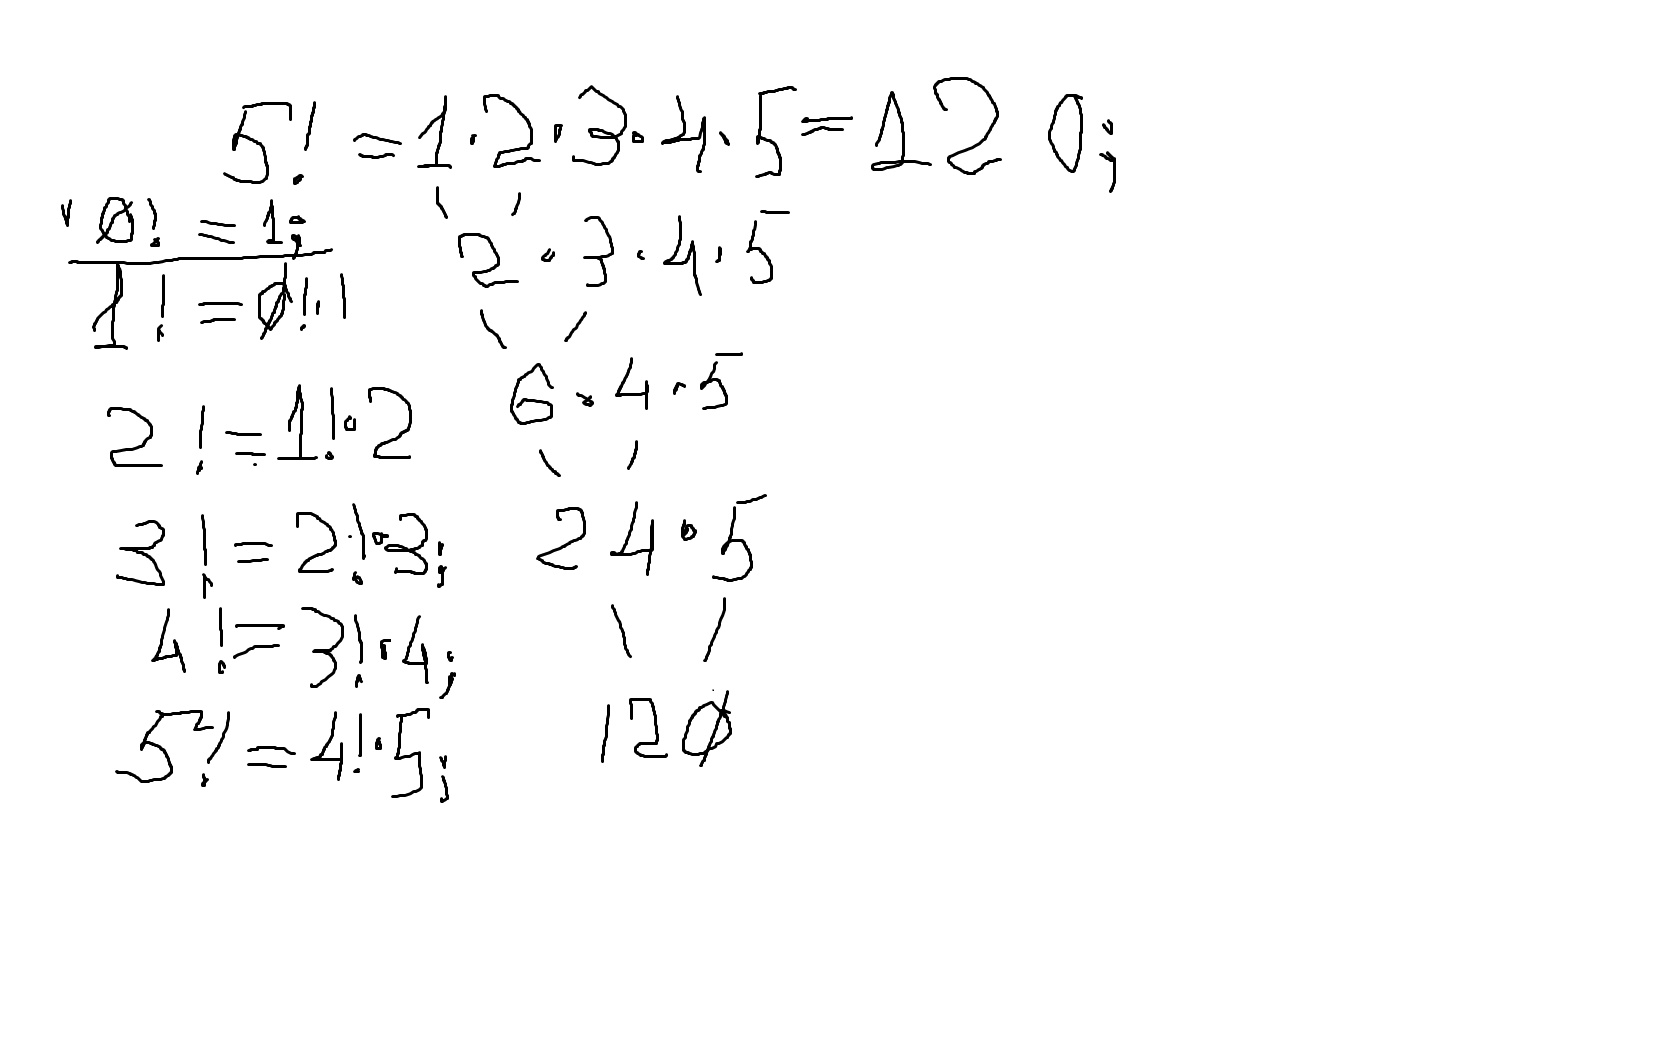 5! = 1·2·3·4·5 = 120;
0! = 1;
1! = 0!·1
2! = 1!·2
3! = 2!·3;
4! = 3!·4;
5! = 4!·5;
2·3·4·5
6·4·5
24·5
120